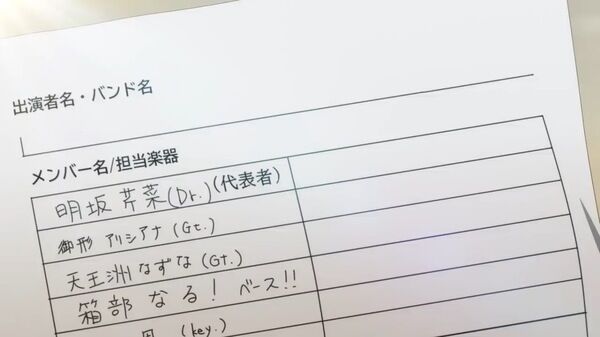 出演者名・バンド名
メンバー名/担当楽器
明坂 芹菜(Dr.)(代表者)
御形 アリシアナ(Gt.)
天王洲 なずな(Gt.)
箱部 なる! ベース!!
(key.)